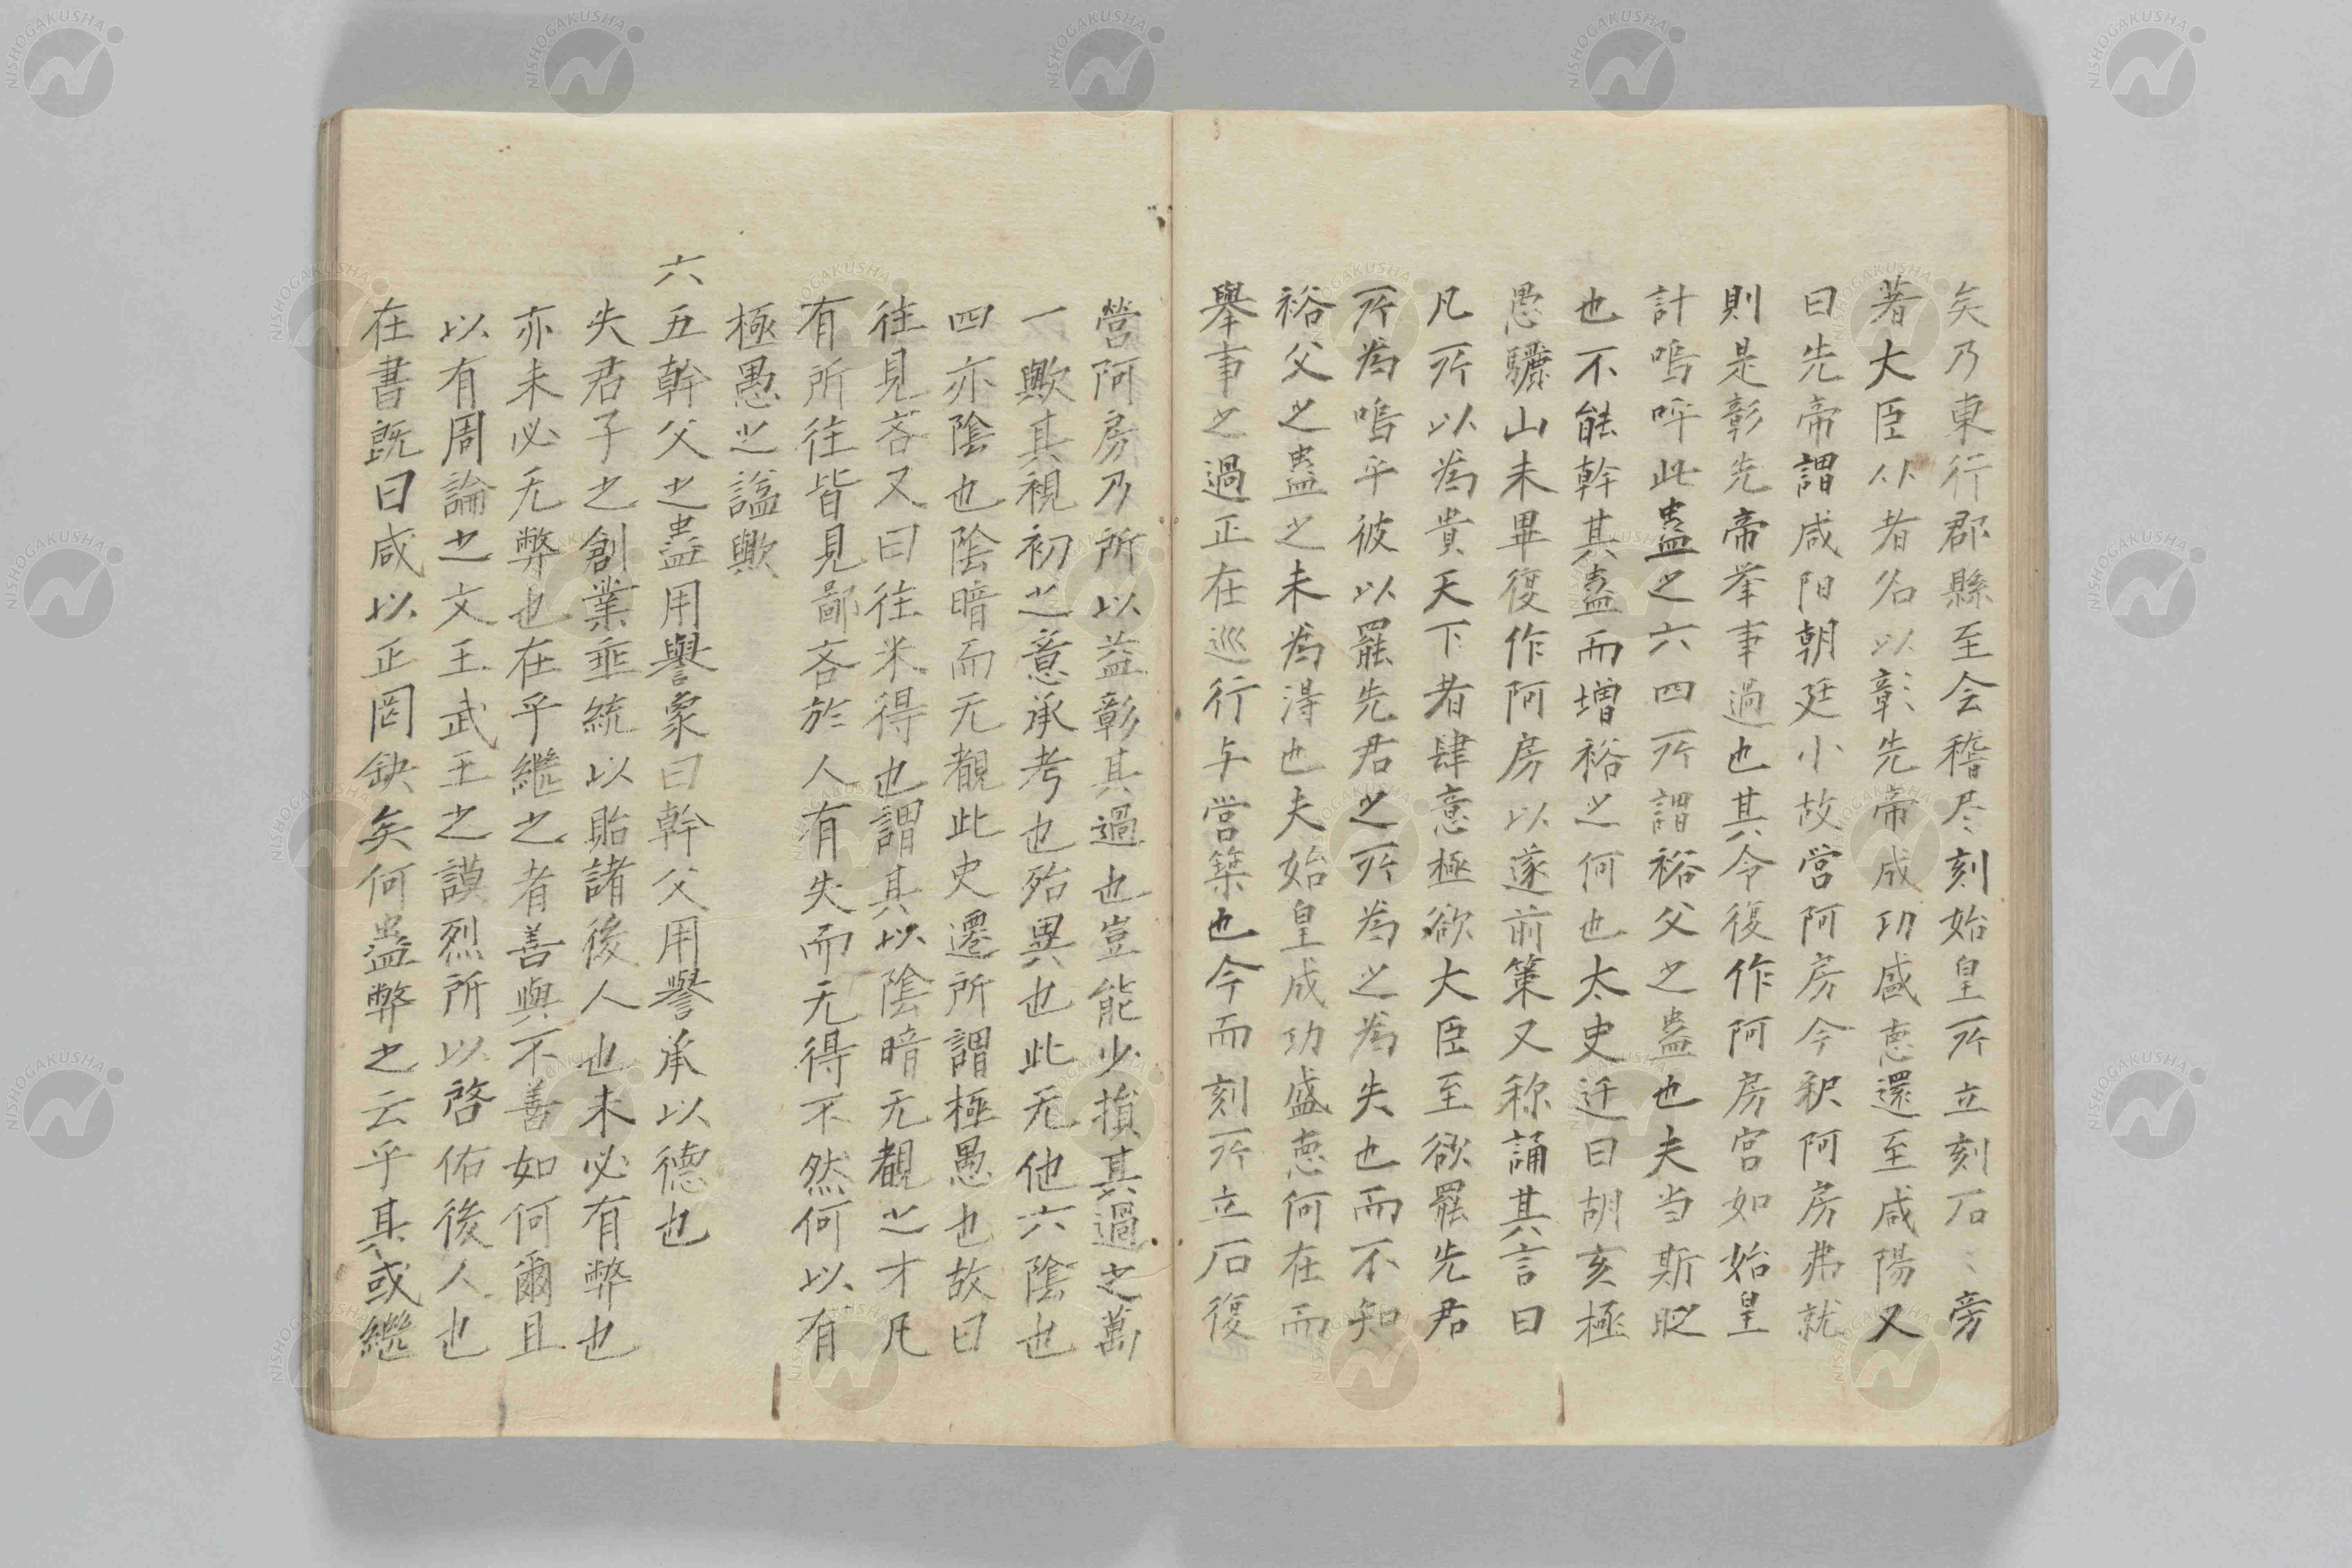 矣乃東行郡縣至会稽尽刻始皇所立刻石〻旁
著大臣从者名以彰先帝成功盛悳還至咸陽又
曰先帝謂咸阳朝廷小故営阿房今釈阿房弗就
則是彰先帝挙事過也其令復作阿房宮如始皇
計嗚呼此蠱之六四所謂裕父之蠱也夫当斯时
也不能幹其蠱而增裕之何也太史迁曰胡亥極
愚驪山未畢復作阿房以遂前策又称誦其言曰
凡所以為貴天下者肆意極欲大臣至欲罷先君
所為嗚乎彼以罷先君之所為之為失也而不知
裕父之蠱之未為得也夫始皇成功盛悳何在而
舉事之過正在巡行与営築也今而刻所立石復
營阿房乃所以益彰其過也豈能少損其過之萬
一歟其視初之意承考也殆異也此无他六陰也
四亦陰也陰暗而无觀此史遷所謂極愚也故曰
往見吝又曰往未得也謂其以陰暗无觀之才凡
有所往皆見鄙吝於人有失而无得不然何以有
極愚之諡歟
六五幹父之蠱用譽象曰幹父用譽承以德也
失君子之創業垂統以貽諸後人也未必有弊也
亦未必无弊也在乎繼之者善與不善如何爾且
以有周論之文王武王之謨烈所以啓佑後人也
在書既曰咸以正罔缺矣何蠱弊之云乎其或繼
NISHOGAKUSHA